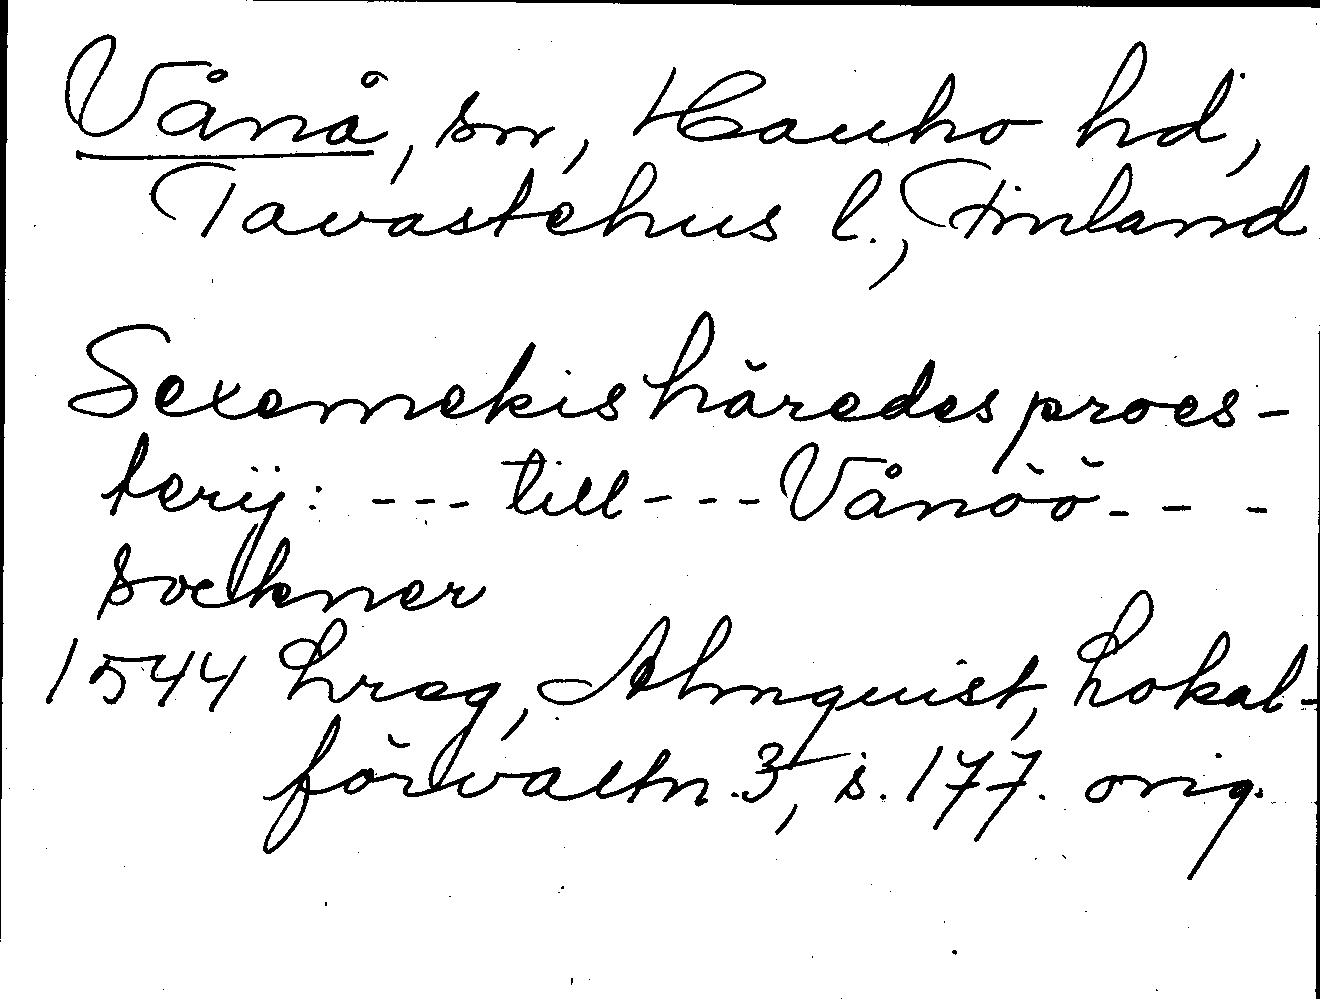 Vånå, sn, Hauho hd,
Tavastehus l., Finland
Sexemekis häredes proes-
terij: --- till --- Vånöö ---
sockner
1544 Lreg, Almquist, Lokal-
förvaltn. 3, s. 177. orig.